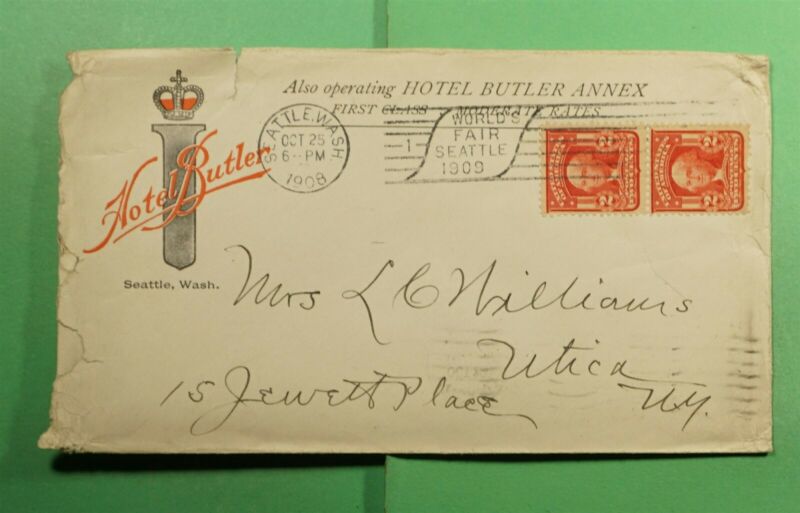 Also operating HOTEL BUTLER ANNEX
FIRST CLASS MODERATE RATES
Hotel Butler
Seattle, Wash.
SEATTLE, WASH.
OCT 25
6-PM
1908
1
WORLD'S
FAIR
SEATTLE
1909
2 2
2 2
Mrs L C Williams
Utica
15 Jewett Place
N.Y.